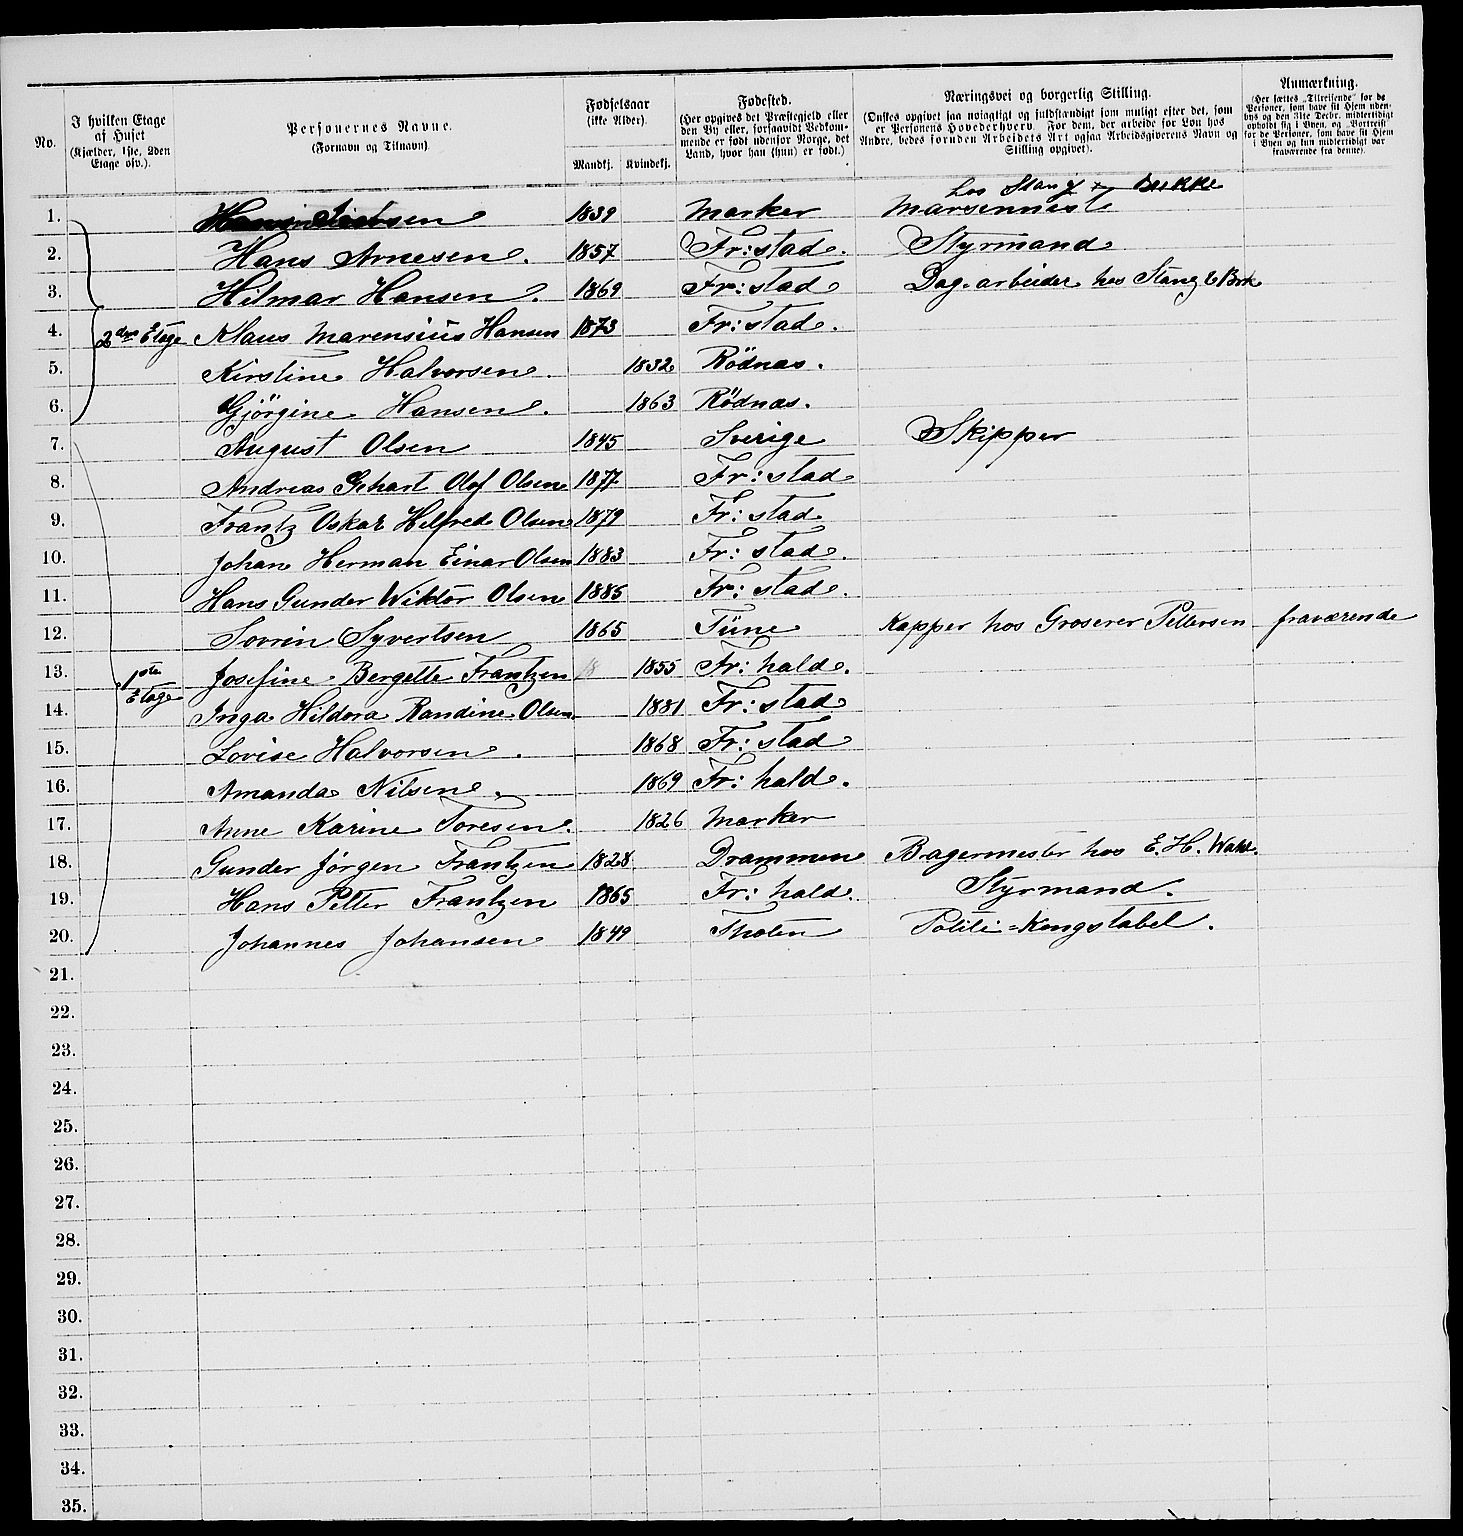 No.
I hvilken Etage af Huset
(Kjælder, 1ste, 2den Etage osv.).
Personernes Navne.
(Fornavn og Tilnavn).
Fødselsaar
(ikke Alder).
Mandkj. Kvindekj.
Fødested.
(Her opgives det Præstegjeld eller
den By eller, forsaavidt Vedkom-
mende er født udenfor Norge, det
Land, hvor han (hun) er født.)
Næringsvei og borgerlig Stilling.
(Ønskes opgivet saa nøiagtigt og fuldstændigt som muligt efter det, som
er Personens Hovederhverv. For dem, der arbeide for Løn hos
Andre, bedes foruden Arbeidets Art ogsaa Arbeidsgiverens Navn og
Stilling opgivet).
Anmærkning.
(Her sættes „Tilreisende" for de
Personer, som have sit Hjem uden-
bys og den 31te Decbr. midlertidigt
opholdt sig i Byen, og „Bortreist"
for de Personer, som have sit Hjem
i Byen og kun midlertidigt var
fraværende fra denne).
hos Stang
1. 1839 Marker
2. Hans Arnesen. 1857 Fr:stad. Styrmand
3. Hilmar Hansen. 1869 Fr:stad Dag-arbeider hos Stang & Bok
4. 2den Etage Klaus Marensius Hansen 1873 Fr:stad.
5. Kirstine Halvorsen. 1832 Rödnæs.
6. Gjörgine Hansen. 1863 Rödnæs.
7. August Olsen 1845 Sverige Skipper
8. Andreas Gehart Olof Olsen 1877 Fr:stad
9. Frantz Oskar Helfred Olsen 1879 Fr:stad
10. Johan Herman Einar Olsen 1883 Fr:stad.
11. Hans Gunder Wiktor Olsen 1885 Fr:stad.
12. Sovrin Syvertsen 1865 Tüne Kapper hos Groserer Pettersen fraværende
13. 1ste Etage Josefine Bergette Frantzen 18 1855 Fr:hald.
14. Inga Hildora Randine Olsen 1881 Fr:stad
15. Lovise Halvorsen. 1868 Fr:stad
16. Amanda Nilsen. 1869 Fr:hald.
17. Anne Karine Toresen. 1826 Marker
18. Gunder Jørgen Frantzen 1828 Drammen Bagermester hos E. H.
19. Hans Petter Frantzen 1865 Fr:hald. Styrmand.
20. Johannes Johansen 1849 Thoten Politi-Kongstabel.
21.
22.
23.
24.
25.
26.
27.
28.
29.
30.
31.
32.
33.
34.
35.